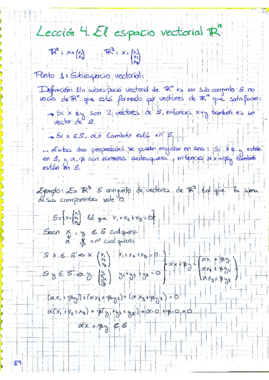 Lección 4. El espacio vectorial ℝⁿ
ℝⁿ: x=(x₁ x₂) ℝⁿ: x=(x₁ x₂ x₃)
Punto 1: Subespacio vectorial:
Definición: Un subespacio vectorial de ℝⁿ es un subconjunto S no
vacío de ℝⁿ que está formado por vectores de ℝⁿ que satisfacen:
→ Si x e y son 2 vectores de S, entonces x+y también es un
vector de S.
→ Si x∈S, αx también está en S.
... Estas dos propiedades se pueden englobar en una: Si x e y están
en S, y α, β son números cualesquiera, entonces αx+βy también
están en S.
Ejemplo: En ℝ³ S conjunto de vectores de ℝ³, tal que la suma
de sus componentes vale 0.
S={x=(x₁ x₂ x₃) tal que x₁+x₂+x₃=0}
Sean x, y ∈ S cualquiera
α, β = nº cualquiera
Si x ∈ S ⇒ x (x₁ x₂ x₃) x₁+x₂+x₃=0
Si y ∈ S ⇒ y (y₁ y₂ y₃) y₁+y₂+y₃=0
αx+βy = (αx₁+βy₁ αx₂+βy₂ αx₃+βy₃)
(αx₁+βy₁)+(αx₂+βy₂)+(αx₃+βy₃)=0
α(x₁+x₂+x₃)+β(y₁+y₂+y₃)=α·0+β·0=0
αx+βy ∈ S